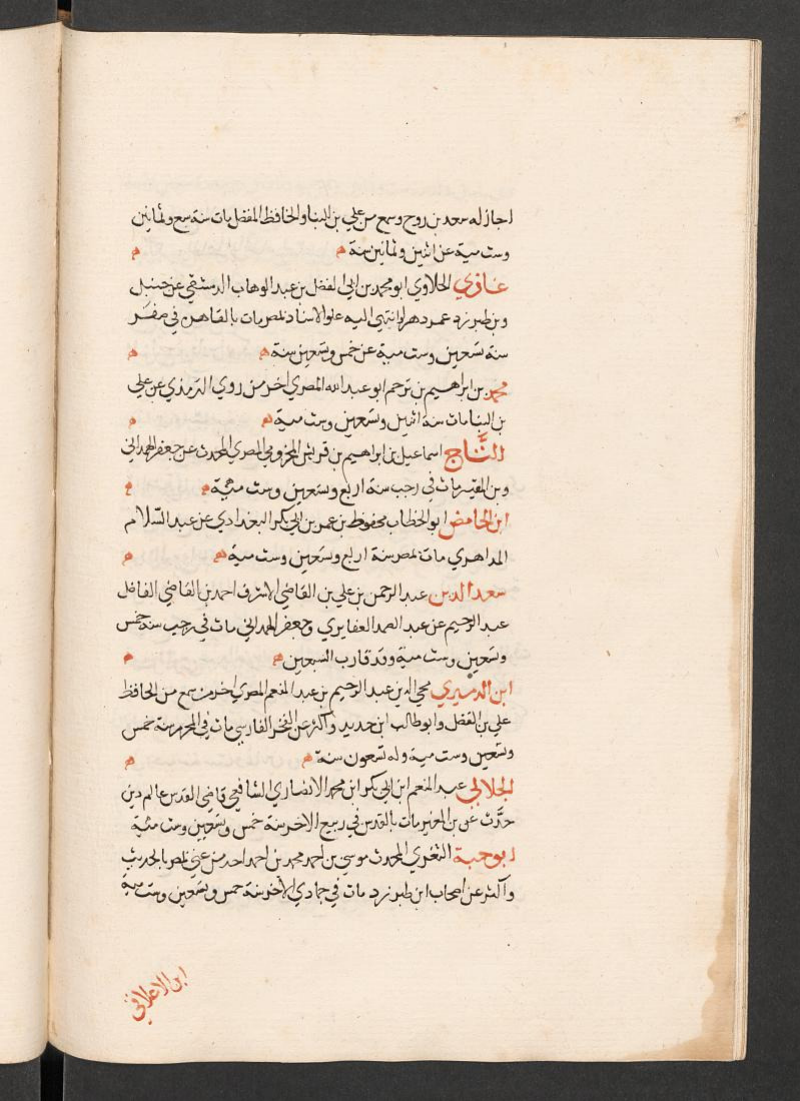 اجاز له سعد بن روح وسمع من علي بن البنا والحافظ المفضل مات سنة سبع وثمانين
وست مية عن اثنين وثمانين سنة
غازي الحلاوي ابو محمد بن ابي الفضل بن عبد الوهاب الدمشقي عن حنبل
وبن طبرزد عمر دهرا وانتهى اليه علو الاسناد بمصر مات بالقاهرة في صفر
سنة تسعين وست مية عن خمس وتسعين سنة
محمد بن ابراهيم بن ترجم ابو عبد الله المصري اخر من روي الترمذي عن علي
بن البنا مات سنة اثنين وتسعين وست مية
التاج اسماعيل بن ابراهيم بن قريش المخزومي المصري المحدث عن جعفر الهمداني
وبن المقير مات في رجب سنة اربع وتسعين وست مئية
ابن الحامض ابو الخطاب محفوظ بن عمر بن ابي بكر البغدادي عن عبد السلام
الداهري مات بمصر سنة اربع وتسعين وست مية
سعد الدين عبد الرحمن بن علي بن القاضي الاشرف احمد بن القاضي الفاضل
عبد الرحيم عن عبد الصمد الغضايري وجعفر الهمداني مات في رجب سنة خمس
وتسعين وست مية وقد قارب السبعين
ابن الدميري محي الدين عبد الرحيم بن عبد المنعم المصري اخر من سمع من الحافظ
علي بن الفضل وابو طالب ابن حديد واكثر عن الفخر الفارسي مات في المحرم سنة خمس
وتسعين وست مية وله تسعون سنة
الجلالي عبد المنعم ابن ابي بكر ابن محمد الانصاري الشافعي قاضي القدس عالم دين
حدث عن بن المقير مات بالقدس في ربيع الاخر سنة خمس وتسعين وست مئية
ابو حبة النغري المحدث موسي بن احمد محمد بن احمد احد من عني بمصر بالحديث
واكثر عن اصحاب ابن طبرزد مات في جمادي الاخر سنة خمس وتسعين وست مية
ابن الاعلاقي